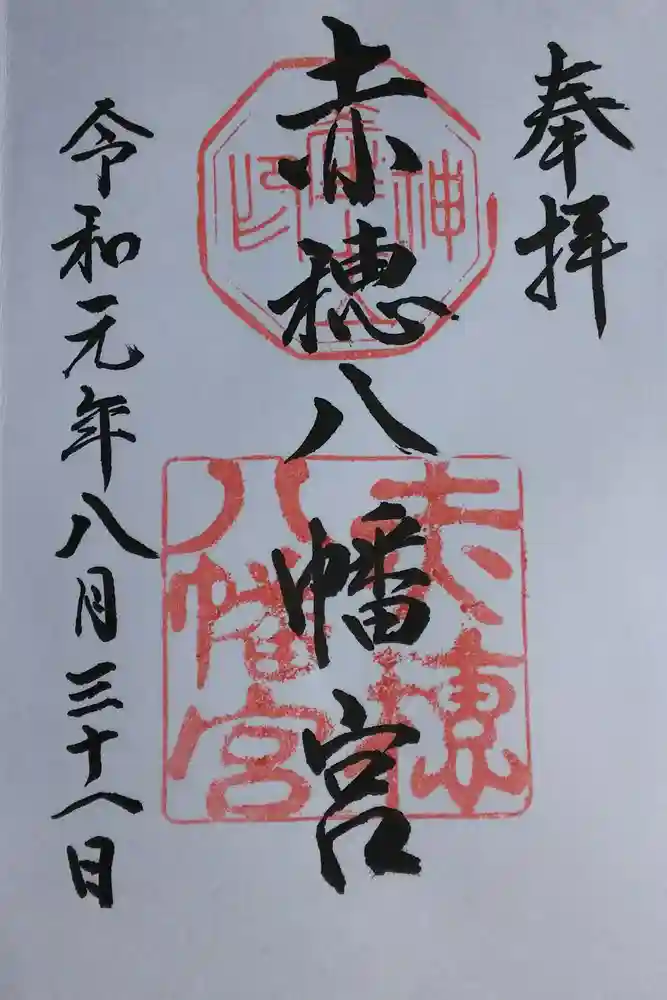 奉拝
赤穂八幡宮
令和元年八月三十八日
赤穂
八幡宮